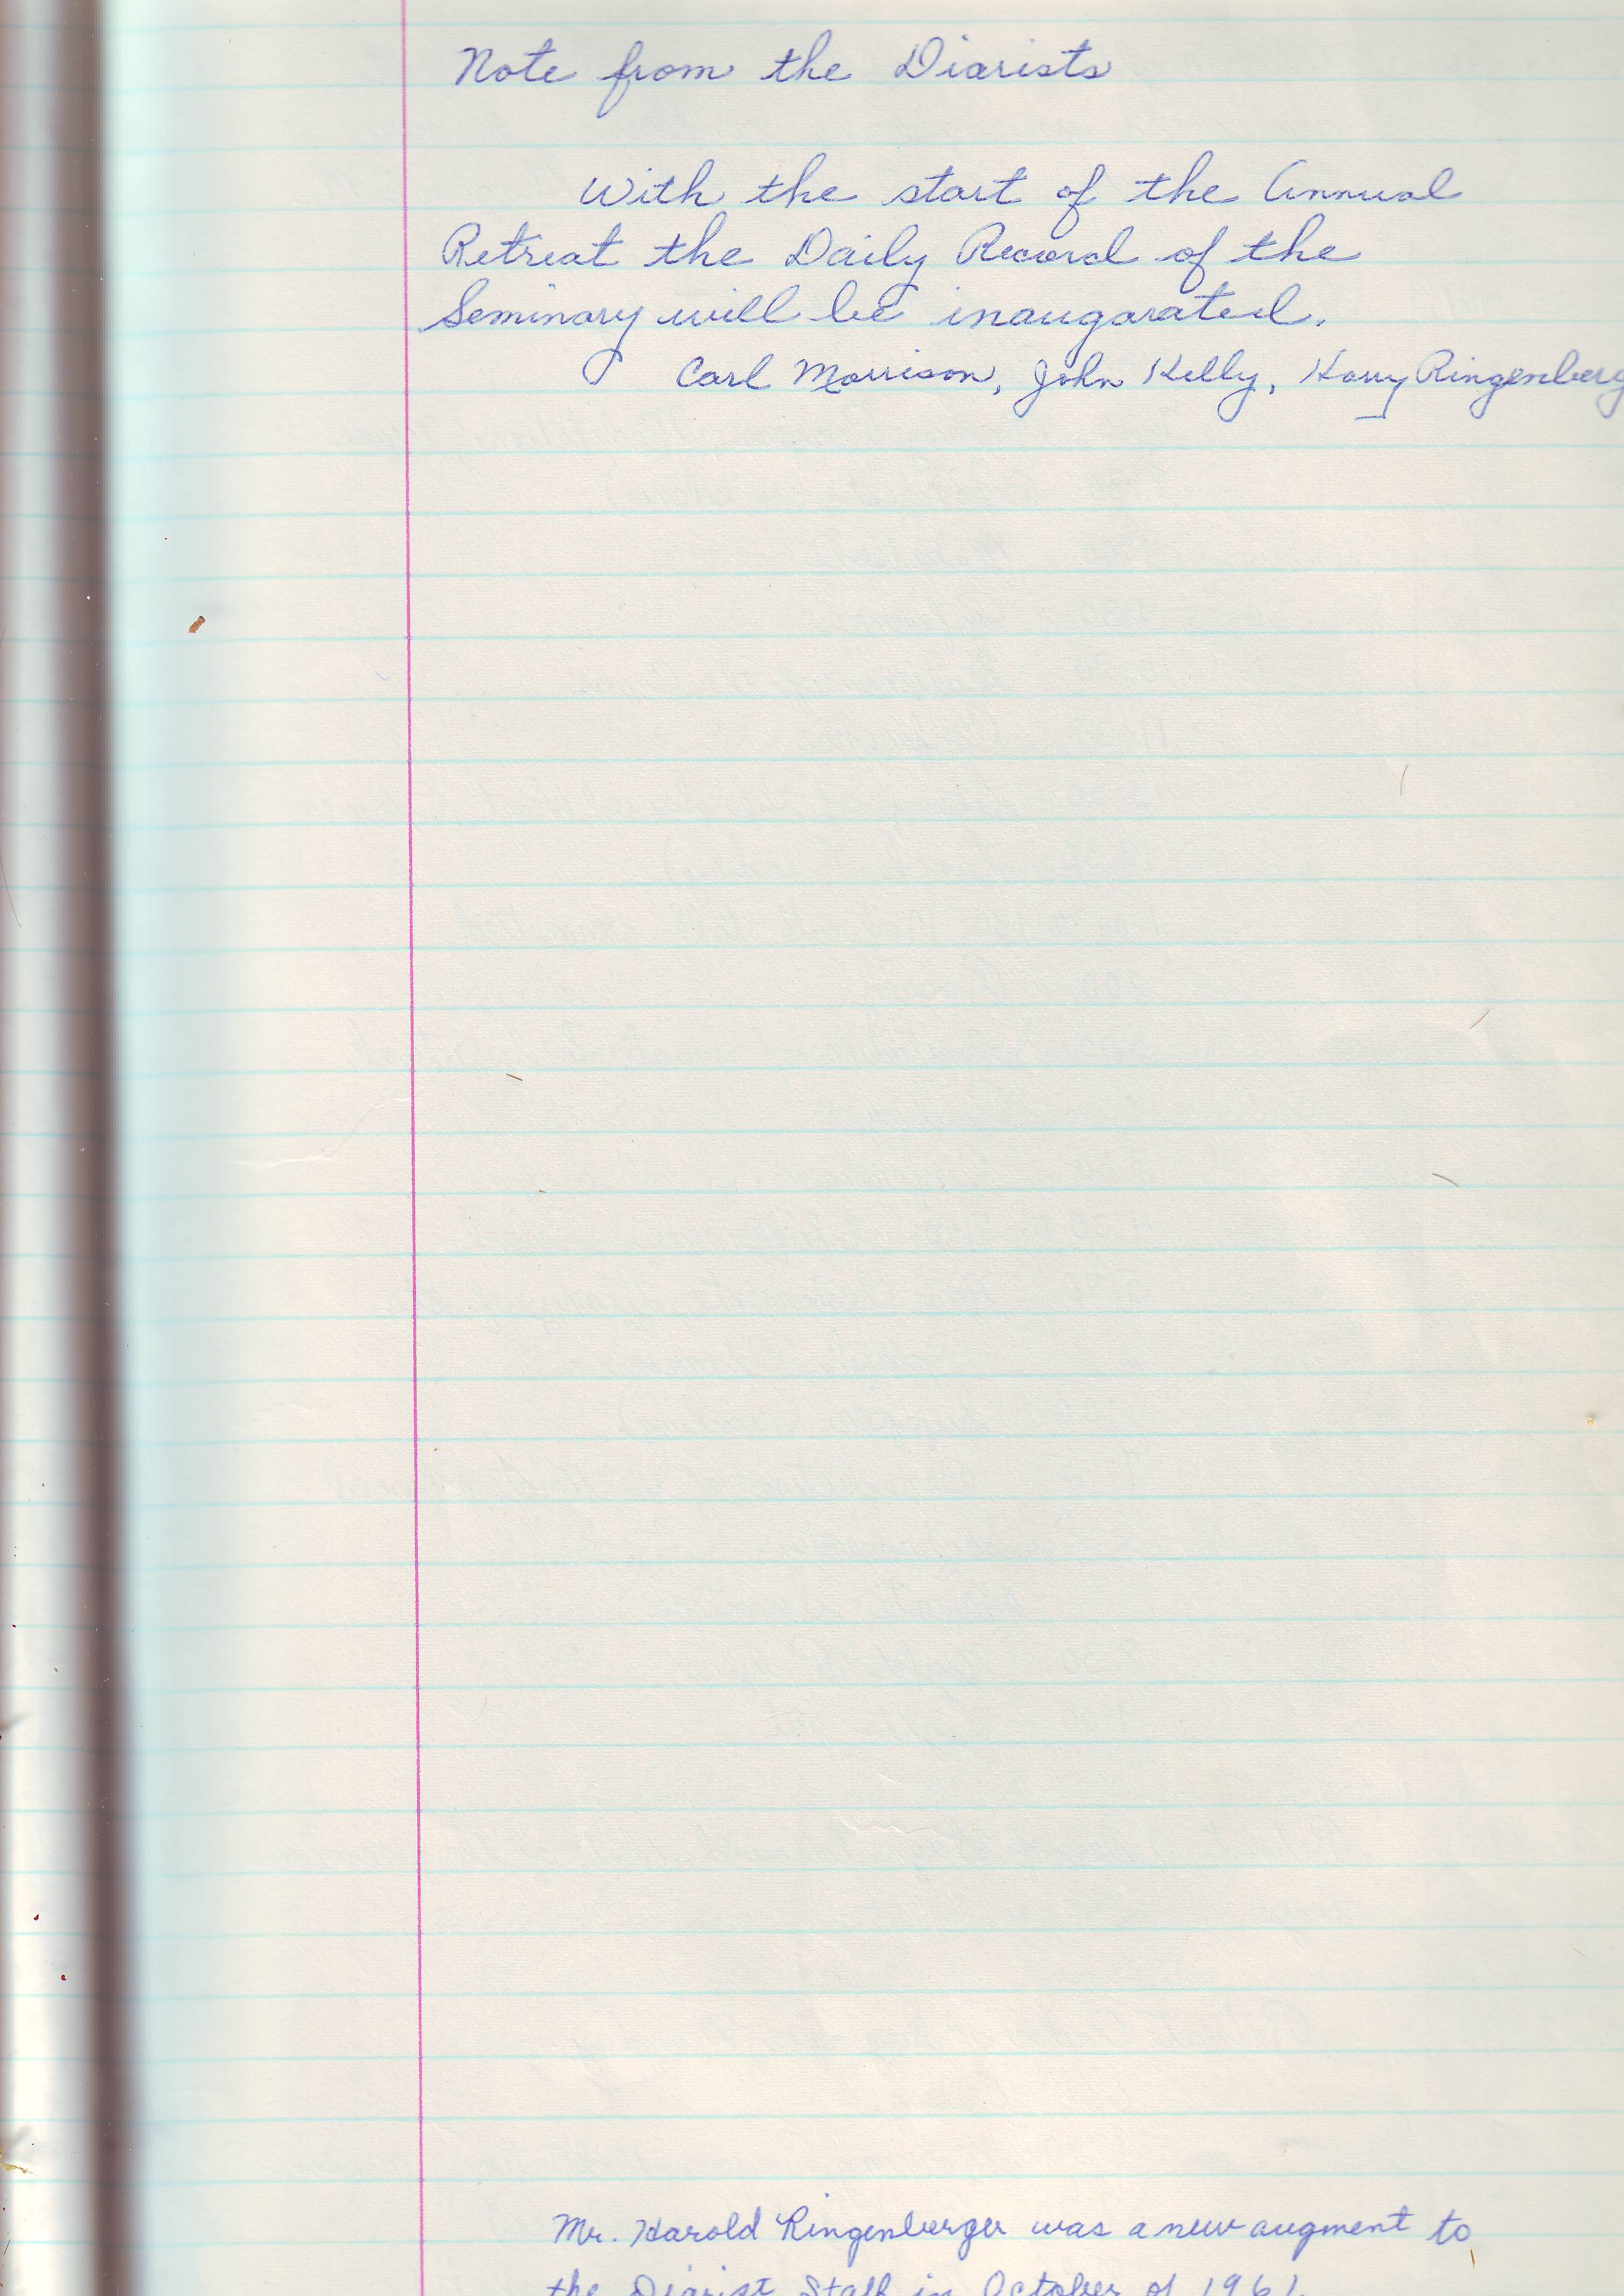 Note from the Diarists
With the start of the Annual
Retreat the Daily Record of the
Seminary will be inaugarated.
Carl Morrison, John Kelly, Harry Ringenberg
Mr. Harold Ringenberger was a new augment to
the Diarist Staff in October of 1961.